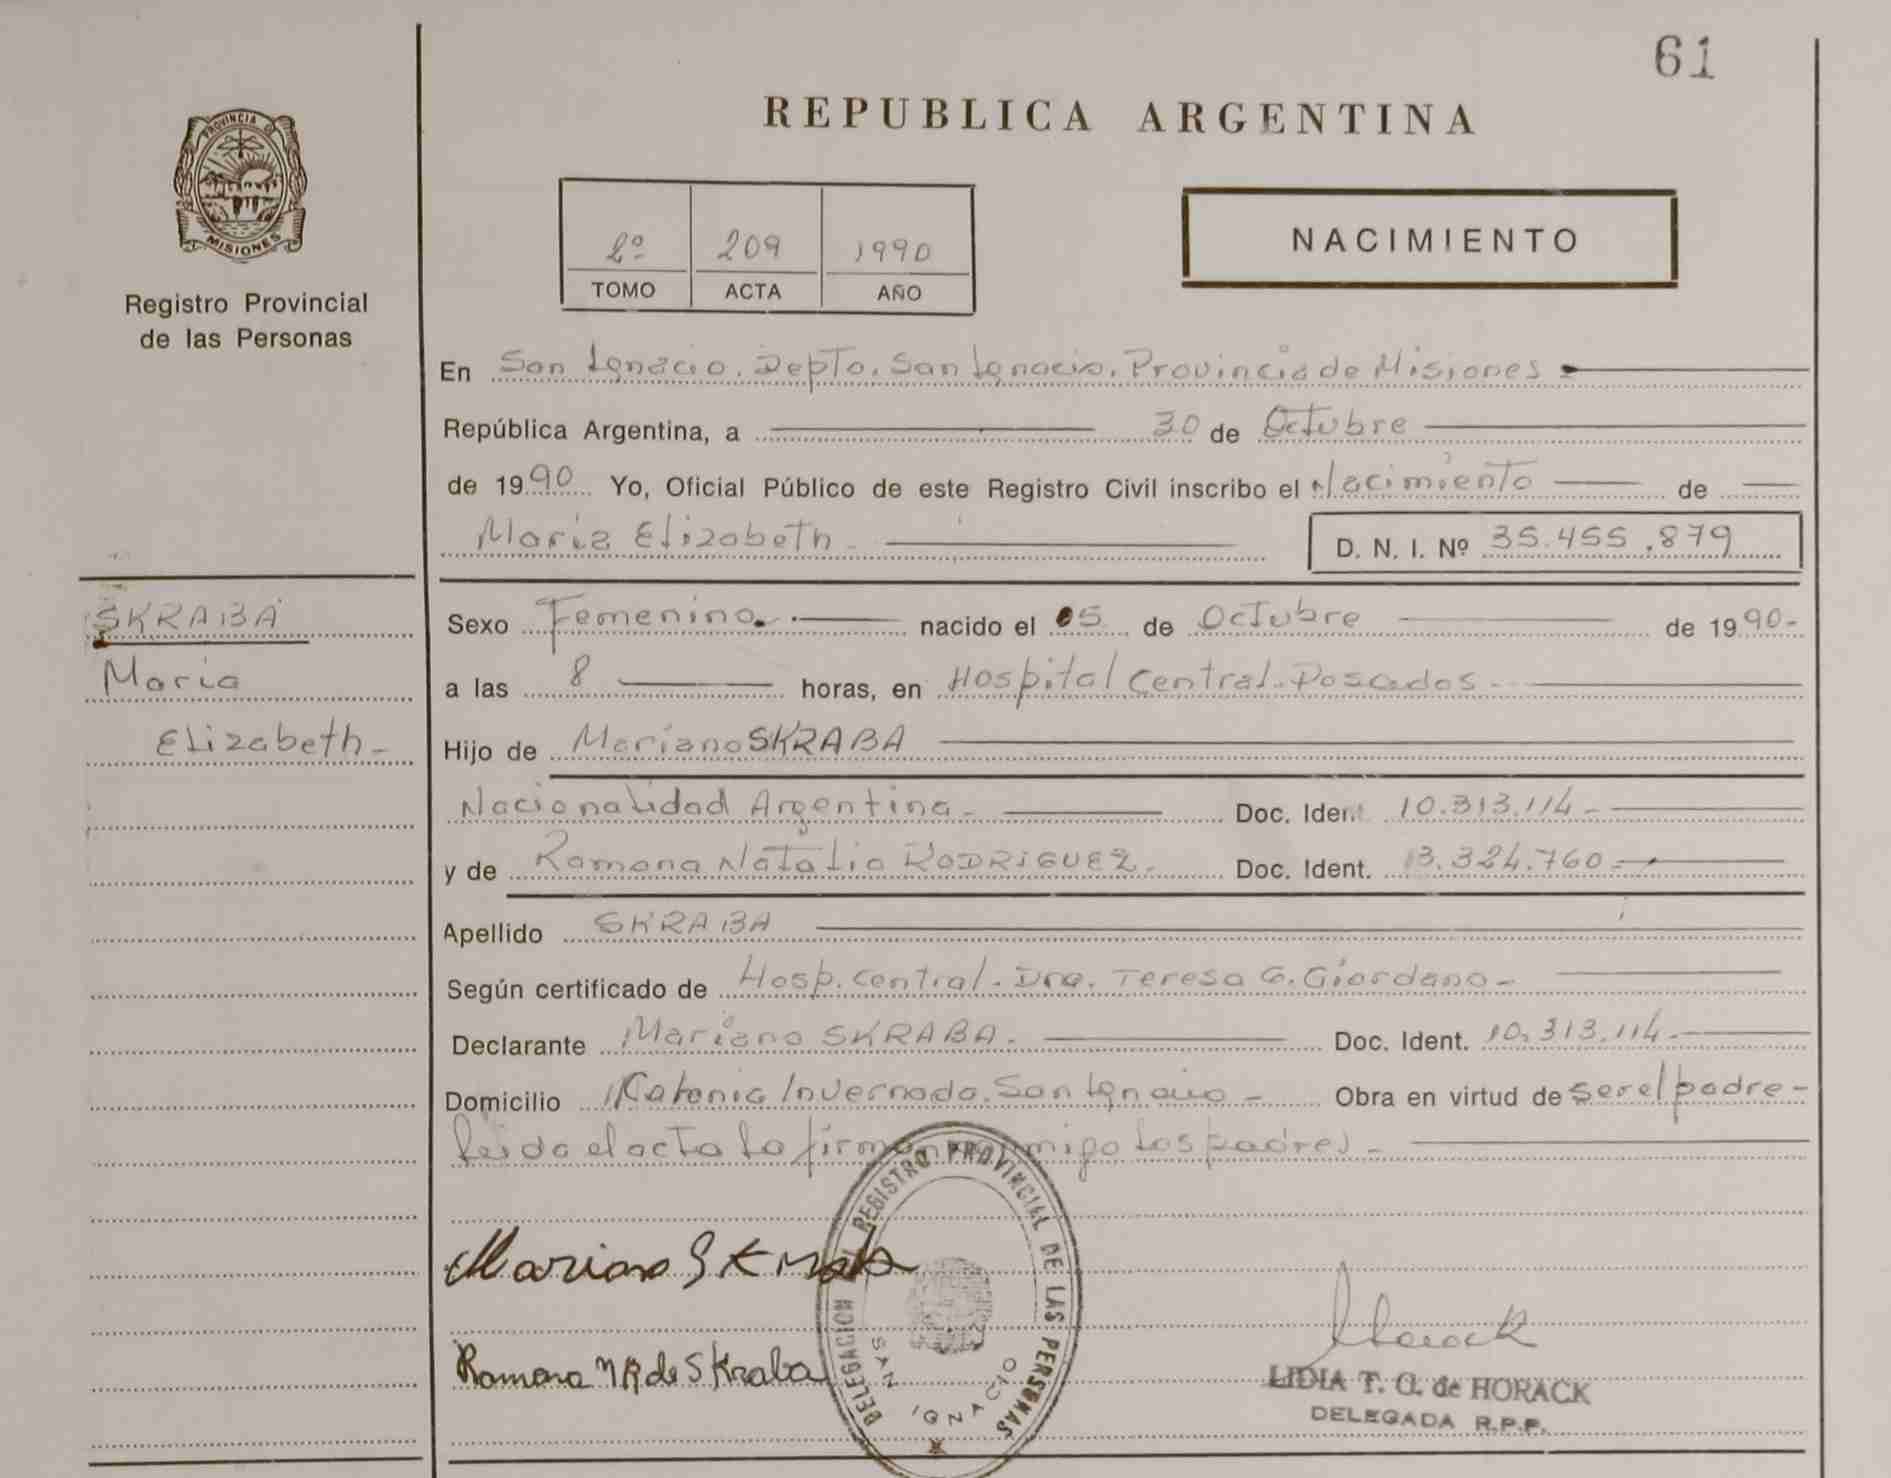 61
REPUBLICA ARGENTINA
PROVINCIA DE
MISIONES
Registro Provincial
de las Personas
2º 209 1990
TOMO ACTA AÑO
NACIMIENTO
En San Ignacio. Depto. San Ignacio. Provincia de Misiones
República Argentina, a 30 de Octubre
de 1990 Yo, Oficial Público de este Registro Civil inscribo el Nacimiento de
Maria Elizabeth - D. N. I. Nº 35.455.879
SKRABA
Maria
Elizabeth -
Sexo Femenino. nacido el 05 de Octubre de 1990-
a las 8 horas, en Hospital Central - Posadas -
Hijo de Mariano SKRABA
Nacionalidad Argentina - Doc. Ident 10.313.114 -
y de Ramona Natalia RODRIGUEZ. Doc. Ident. 13.324.760 -
Apellido SKRABA
Según certificado de Hosp. Central - Dra. Teresa G. Giordano -
Declarante Mariano SKRABA. Doc. Ident. 10.313.114 -
Domicilio Colonia Invernada. San Ignacio - Obra en virtud de ser el padre -
Leida el acta la firman conmigo los padres -
Mariano Skraba
Ramona N R de Skraba
DELEGACION REGISTRO PROVINCIAL DE LAS PERSONAS
SAN IGNACIO
Horack
LIDIA T. G. de HORACK
DELEGADA R.P.P.